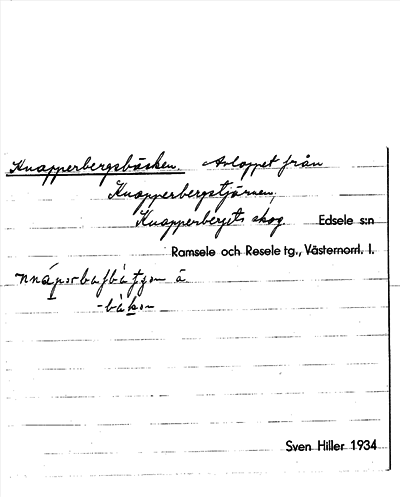 Knapperbergsbäcken. Avloppet från
Knapperbergstjärnen,
Knapperbergets skog. Edsele s:n
Ramsele och Resele tg., Västernorrl. l.
å
Sven Hiller 1934